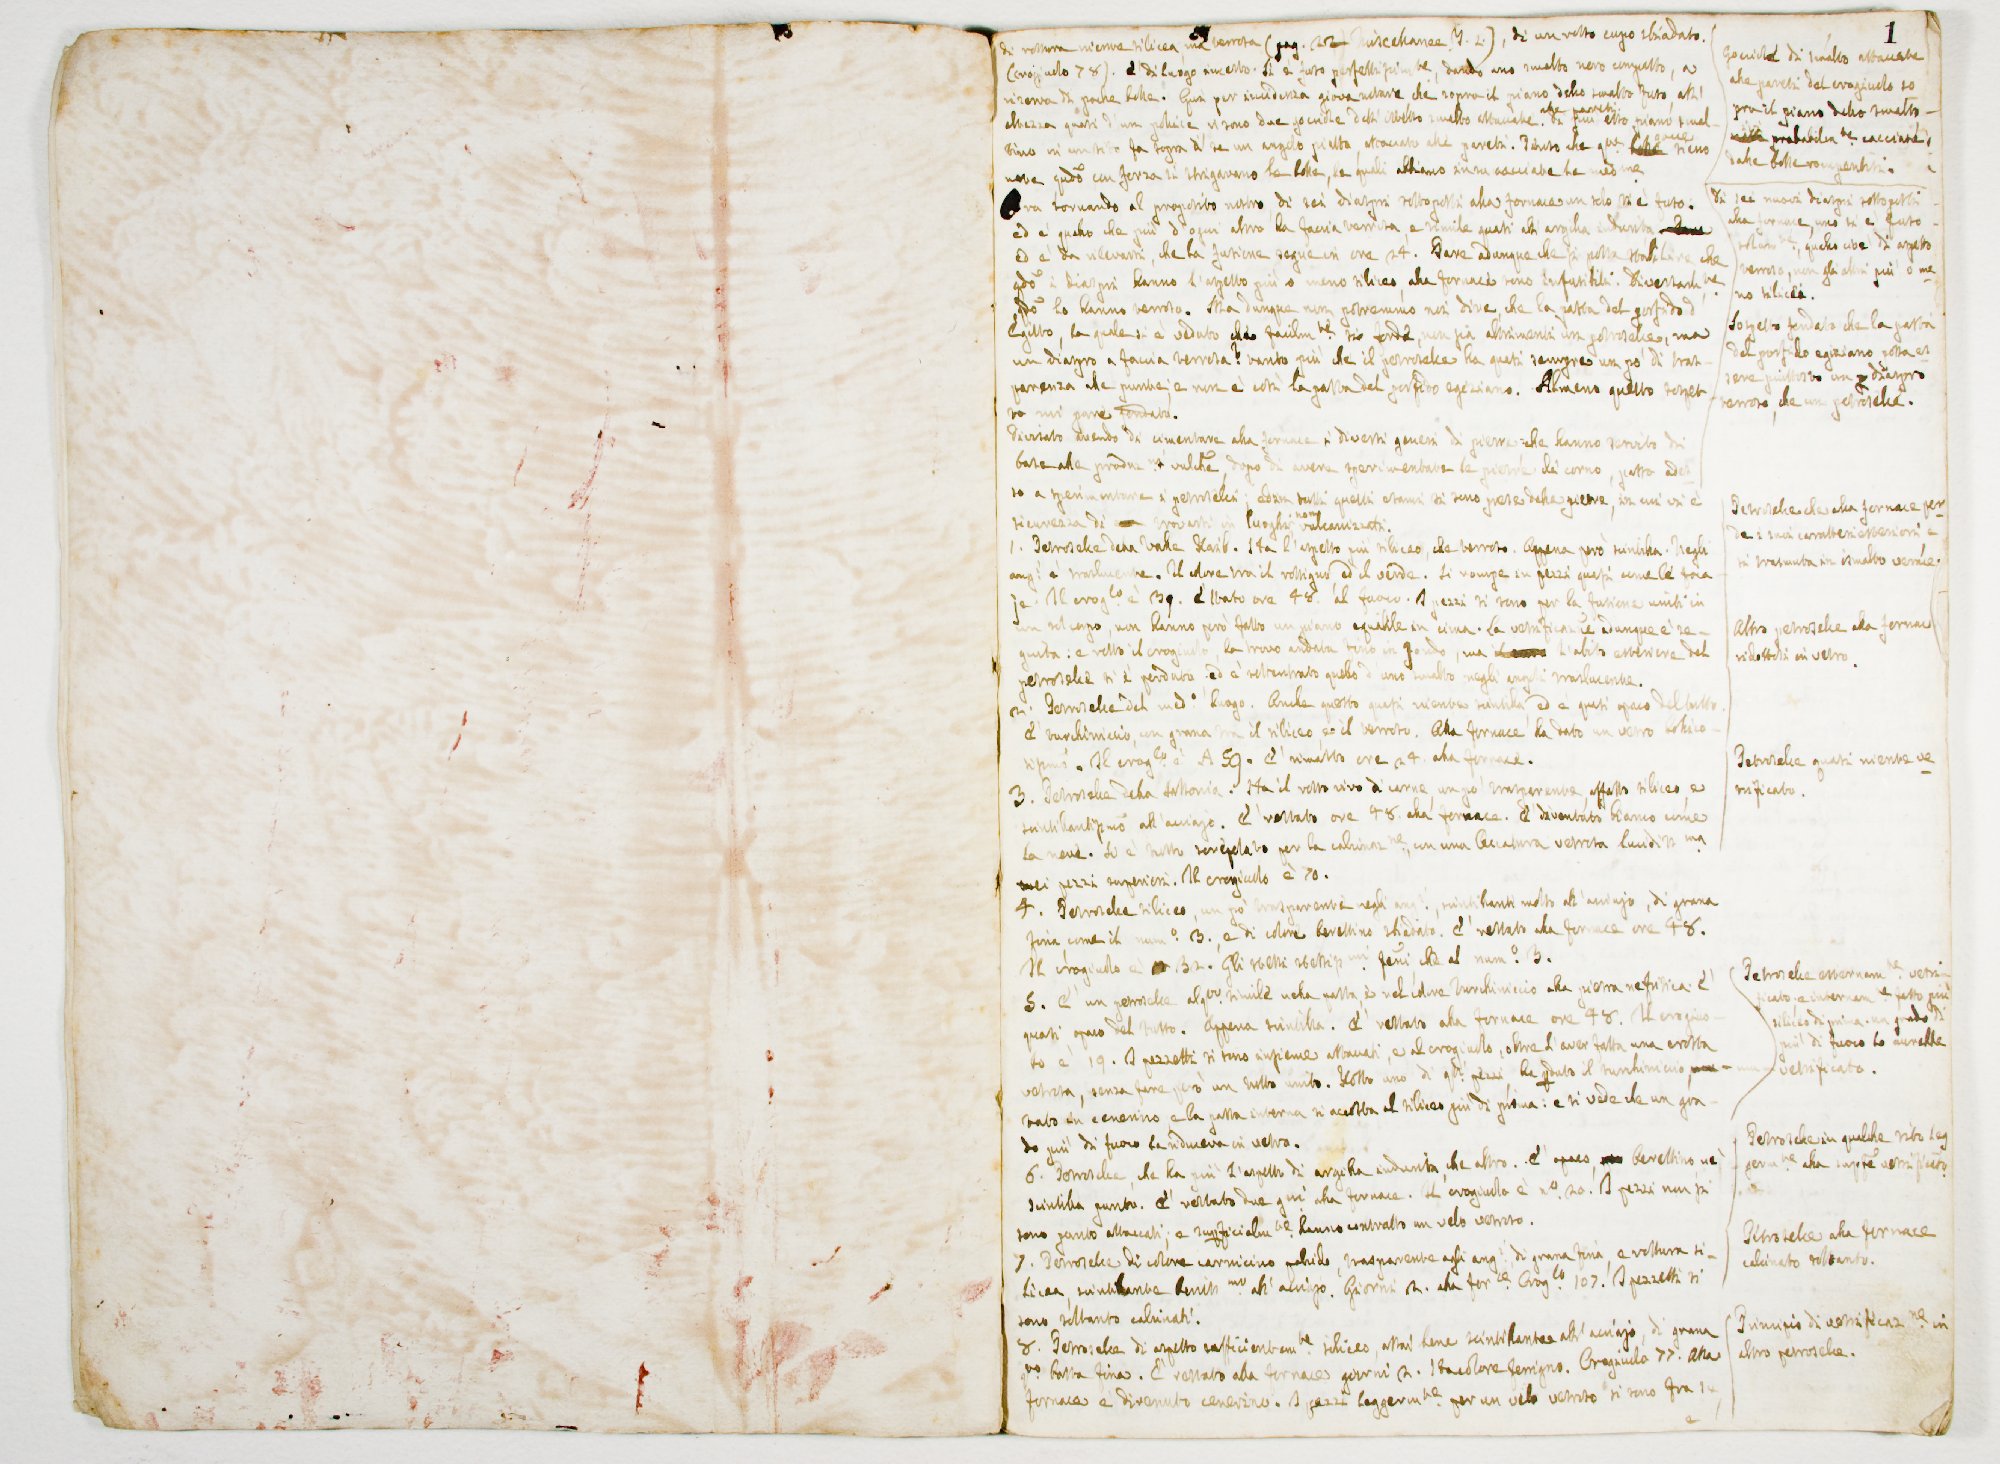 1
di rottura niente silicea ma terrosa (pag. 22 Miscellanee Y. 2.), di un rosso cupo sbiadato.
(Crogiuolo 78). È di luogo incerto. Si è fuso perfettissimte, dando uno smalto nero compatto, a
riserva di poche bolle. Qui per incidenza giova notare che sopra il piano dello smalto fuso, all'
altezza quasi d'un pollice vi sono due gocciole dell'istesso smalto attaccate alle pareti. Di più esso piano smal-
tino in un sito fa sopra di se un angelo piatto, attaccato alle pareti. Penso che que. gocce sieno
nate qudo con forza si sprigavano le bolle, le quali abbiano in su cacciate le medme
Ora tornando al proposito nostro, di sei diaspri sottoposti alla fornace un solo si è fuso.
ed è quello che più d'ogni altro ha faccia terrosa e simile quasi all'argilla indurita
Ed è da rilevarsi, che la fusione segue in ore 24. Pare adunque che si possa stabilire che
qdo i diaspri hanno l'aspetto più o meno siliceo, alla fornace sono infusibili. Diversamte
qdo lo hanno terroso. Ma dunque non potremmo noi dire, che la pasta del porfido d'
Egitto, la quale si è veduto che facilmte si fonde, non sia altrimenti un petroselce, ma
un diaspro a faccia terrosa? tanto più che il petroselce ha quasi sempre un po' di tras-
parenza alle punte, e non è così la pasta del porfido egiziano. Almeno questo sospet-
to mi pare fondato.
Divisato avendo di cimentare alla fornace i diversi generi di pietre che hanno servito di
base alle produzni vulche, dopo di avere sperimentate le pietre di corno, passo ades-
so a sperimentare i petroselci; e con tutti questi esami si sono prese delle pietre, in cui vi è
sicurezza di trovarsi in luoghi non vulcanizzati.
1. Petroselce della Valle . Ha l'aspetto più siliceo, che terroso. Appena però scintilla. Negli
angi è traslucente. Il colore tra il rossigno ed il verde. Si rompe in pezzi quasi come le foca-
je. Il croglo è 39. È stato ore 48. al fuoco. I pezzi si sono per la fusione uniti in
un sol corpo, non hanno però fatto un piano equabile in cima. La vetrificazne adunque è se-
guita: e rotto il crogiuolo, la trovo andata sino in fondo, ma l'abito esteriore del
petroselce si è perduto ed è sottentrato quello d'uno smalto negli angoli traslucente.
2. Petroselce del medo luogo. Anche questo quasi niente scintilla, ed è quasi opaco del tutto.
È turchiniccio, con grana tra il siliceo e il terroso. Alla fornace ha dato un vetro bollico-
sissmo. Il croglo è A 59. È rimasto ore 24. alla fornace.
3. Petroselce della Sassonia. Ha il rosso vivo di carne, un po' trasparente, affatto siliceo, e
scintillantissmo all'acciajo. È restato ore 48. alla fornace. È diventato bianco come
la neve. Si è tutto screpolato per la calcinazne, con una leccatura vetrosa lucidissma
nei pezzi superiori. Il crogiuolo è 70.
4. Petroselce siliceo, un po' trasparente negli angi, scintillanti molto all'acciajo, di grana
fina come il numo 3., e di colore berettino sbiadato. È restato alla fornace ore 48.
Il crogiuolo è 32. Gli stessi stessissmi feni che al numo 3.
5. È un petroselce alqto simile nella pasta, e nel colore turchiniccio alla pietra nefritica. È
quasi opaco del tutto. Appena scintilla. È restato alla fornace ore 48. Il crogiuo-
lo è 19. I pezzetti si sono insieme attaccati, e al crogiuolo, oltre l'aver fatta una crosta
vetrosa, senza fare però un tutto unito. Rotto uno di qsti pezzi ha pduto il turchiniccio, mu-
tato in cenerino e la pasta interna si accosta al siliceo più di prima: e si vede che un gra-
do più di fuoco la riduceva in vetro.
6. Petroselce, che ha più l'aspetto di argilla indurita, che altro. È opaco, berettino nè
scintilla punto. È restato due gni alla fornace. Il crogiuolo è no 20. I pezzi non si
sono punto attaccati; e supficialmte hanno contratto un velo vetroso.
7. Petroselce di colore carnicino pallido, trasparente agli angi, di grana fina, e rottura si-
licea, scintillante benissmo all'acciajo. Giorni 2. alla force Croglo 107. I pezzetti si
sono soltanto calcinati.
8. Petroselce di aspetto sufficientemte siliceo, assai bene scintillante all'acciajo, di grana
qto basta fina. È restato alla fornace giorni 2. Ha colore ferrigno. Crogiuolo 77. Alla
fornace è divenuto cenerino. I pezzi leggermte per un velo vetroso si sono fra se
e
Gocciole di smalto attaccate
alle pareti del crogiuolo so
pra il piano dello smalto
probabilmte cacciate
dalle bolle rompentisi.
Di sei nuovi diaspri sottoposti
alla fornace, uno si è fuso
soltante, quello cioe di aspetto
terroso, non gli altri più o me
no silicei.
Sospetto fondato che la pasta
del porfido egiziano possa es-
sere piuttosto un diaspro
terroso, che un petroselce.
Petroselce che alla fornace per-
de i suoi caratteri esteriori e
si trasmuta in ismalto vetrice.
Altro petroselce alla fornace
ridottosi in vetro.
Petroselce quasi niente ve
trificato.
Petroselce esternamte vetri-
ficato, e internamte fatto più
siliceo di prima. un grado di
più di fuoco lo avrebbe
vetrificato.
Petroselce in qualche sito leg
germte alla supfce vetrificato
Petroselce alla fornace
calcinato soltanto.
Principio di vetrificazne in
altro petroselce.